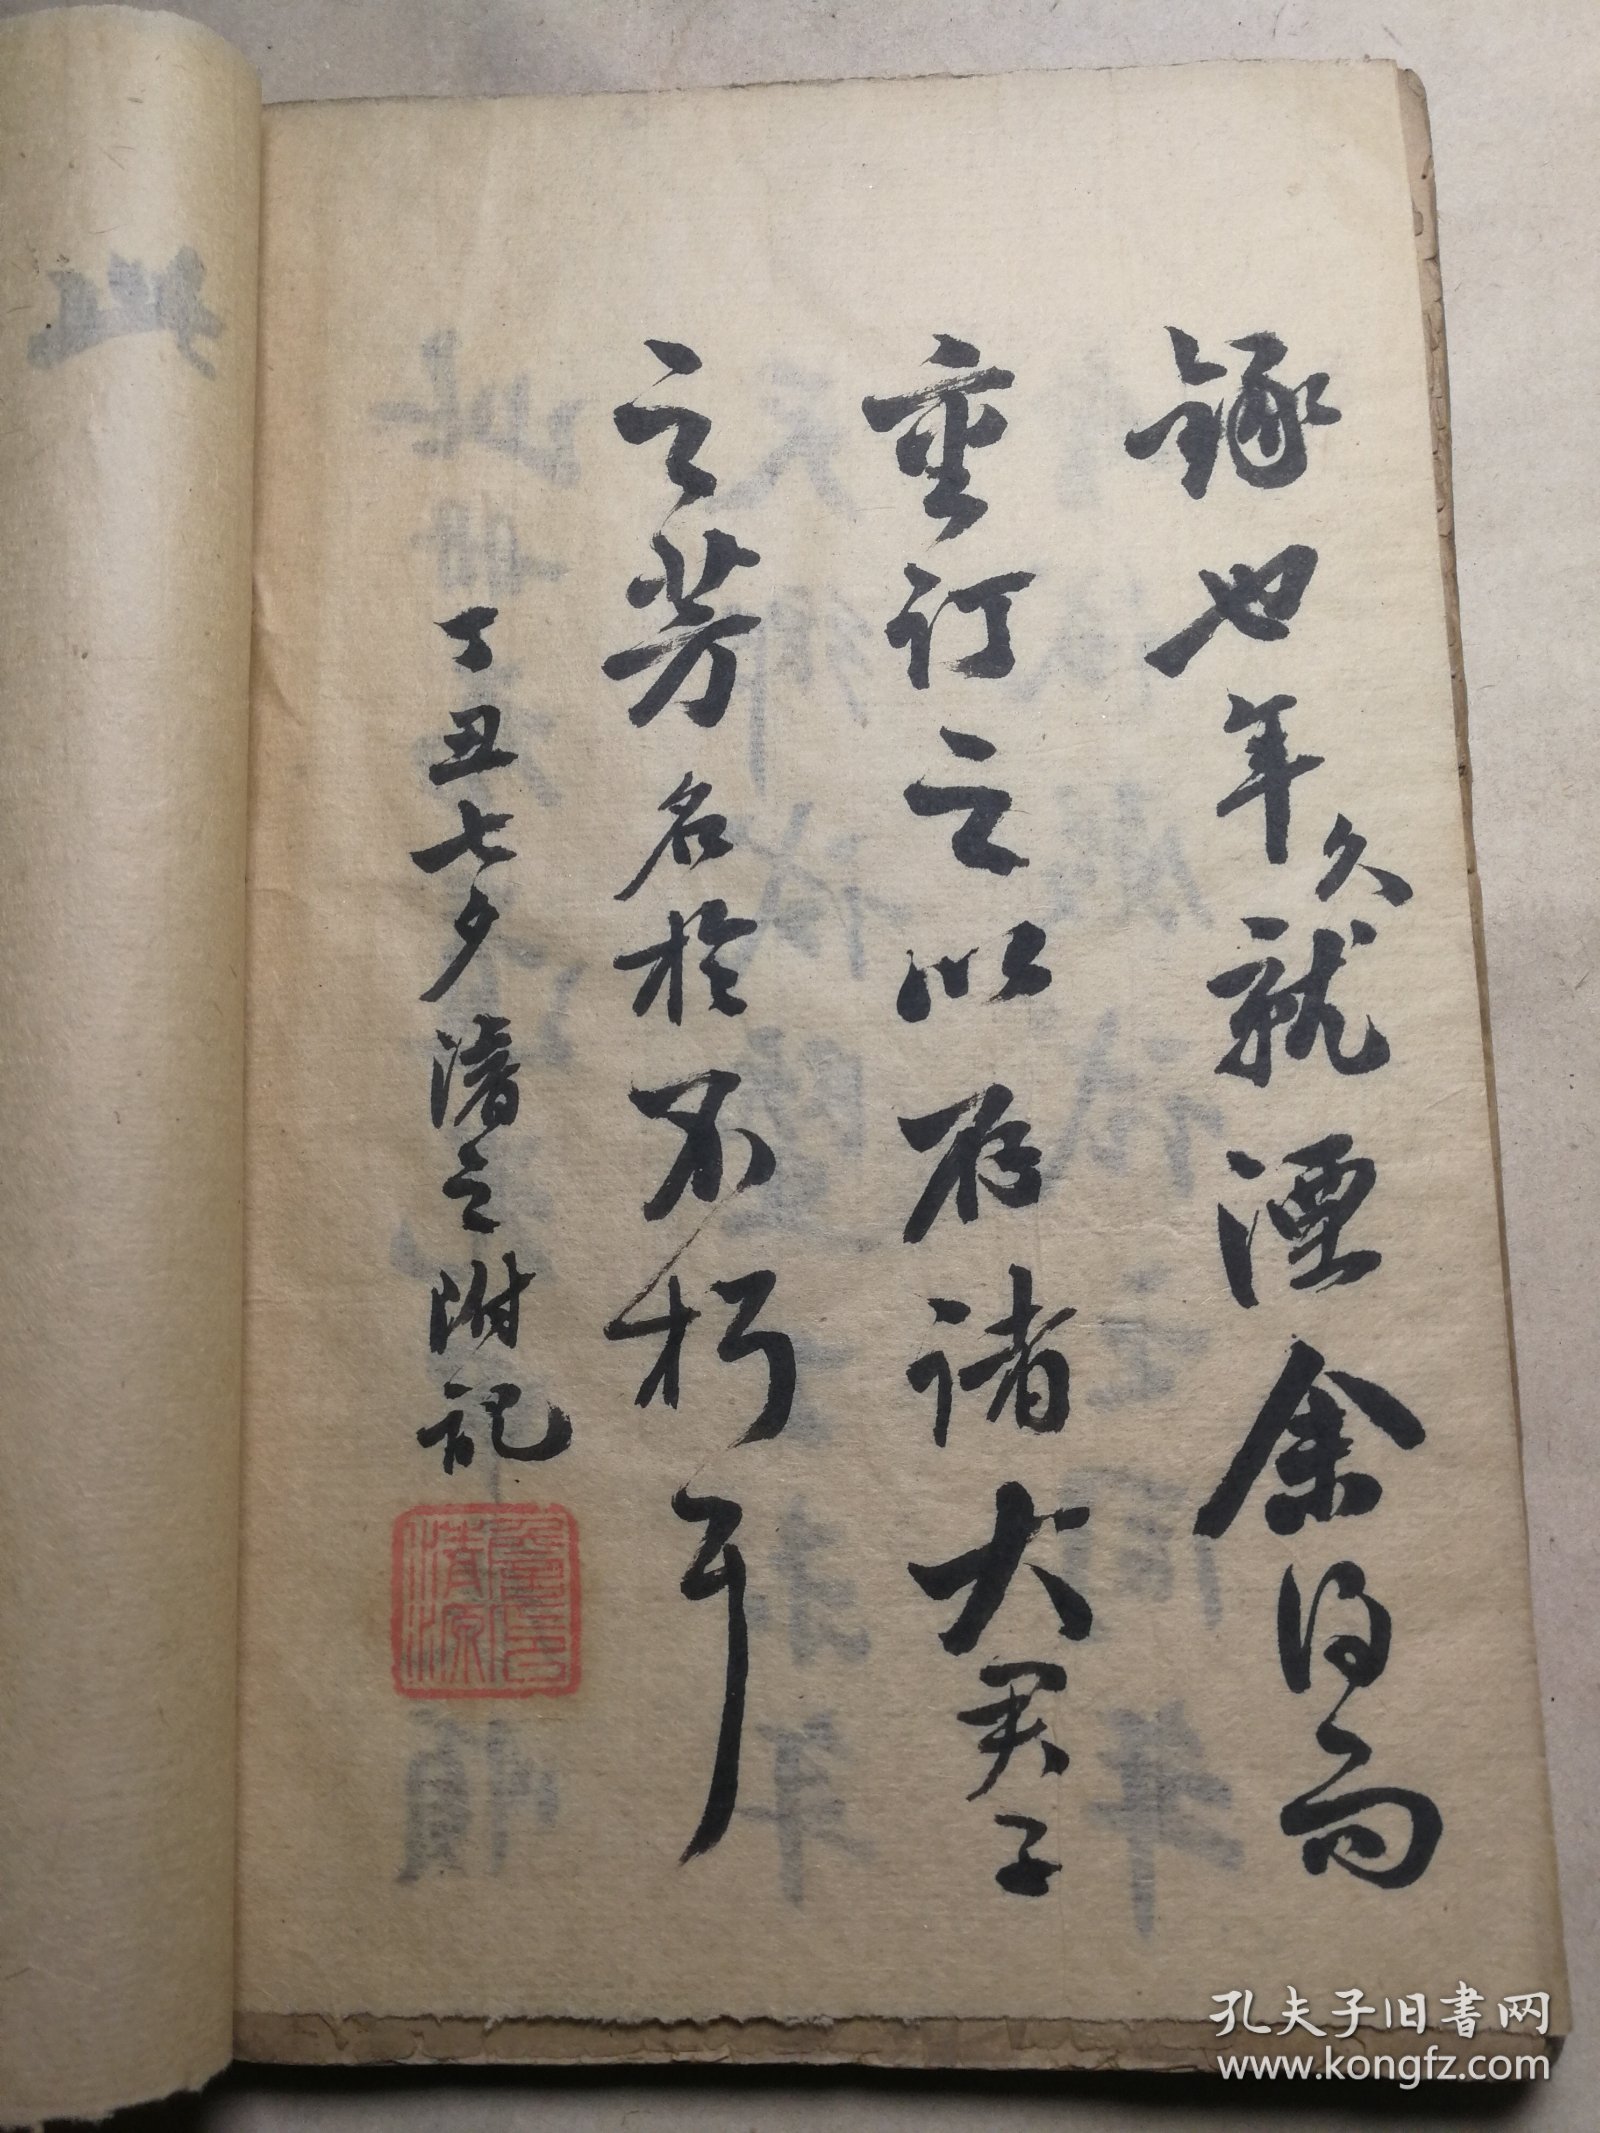 錄也年久就湮余得而
重订之以存诸大君子
之芳名於不朽耳
丁丑七夕濬之附記
清源
孔夫子旧書网
www.kongfz.com